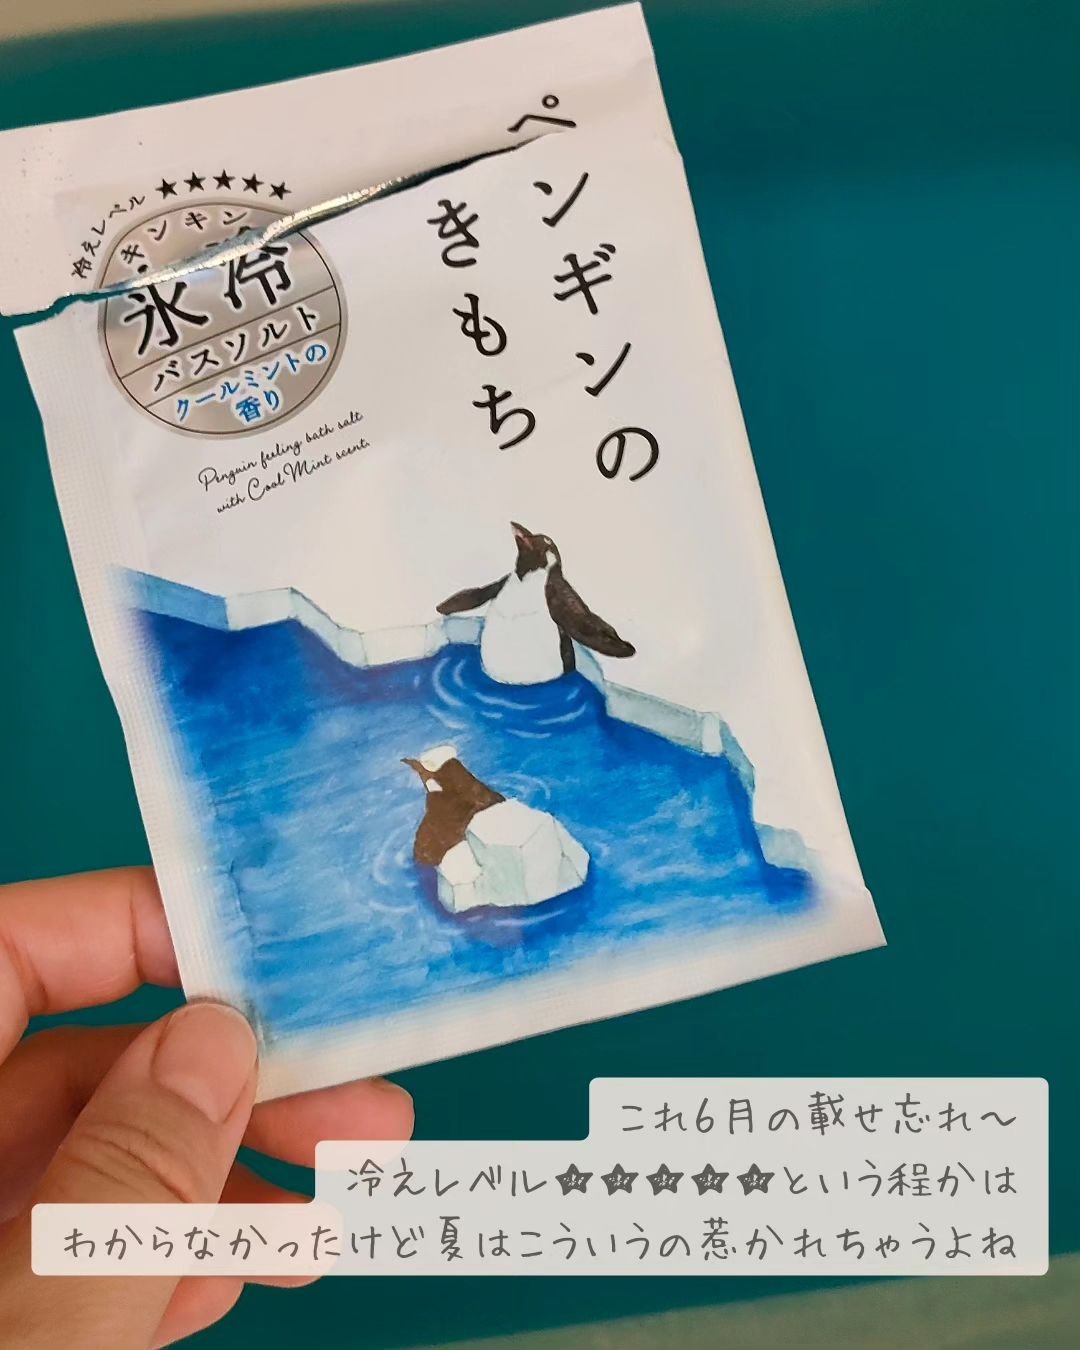 ペンギンの
きもち
冷えレベル★★★★★
キンキン
氷冷
バスソルト
クールミントの
香り
Penguin feeling bath salt
with Cool Mint scent.
これ6月の載せ忘れ〜
冷えレベル★★★★★という程かは
わからなかったけど夏はこういうの惹かれちゃうよね